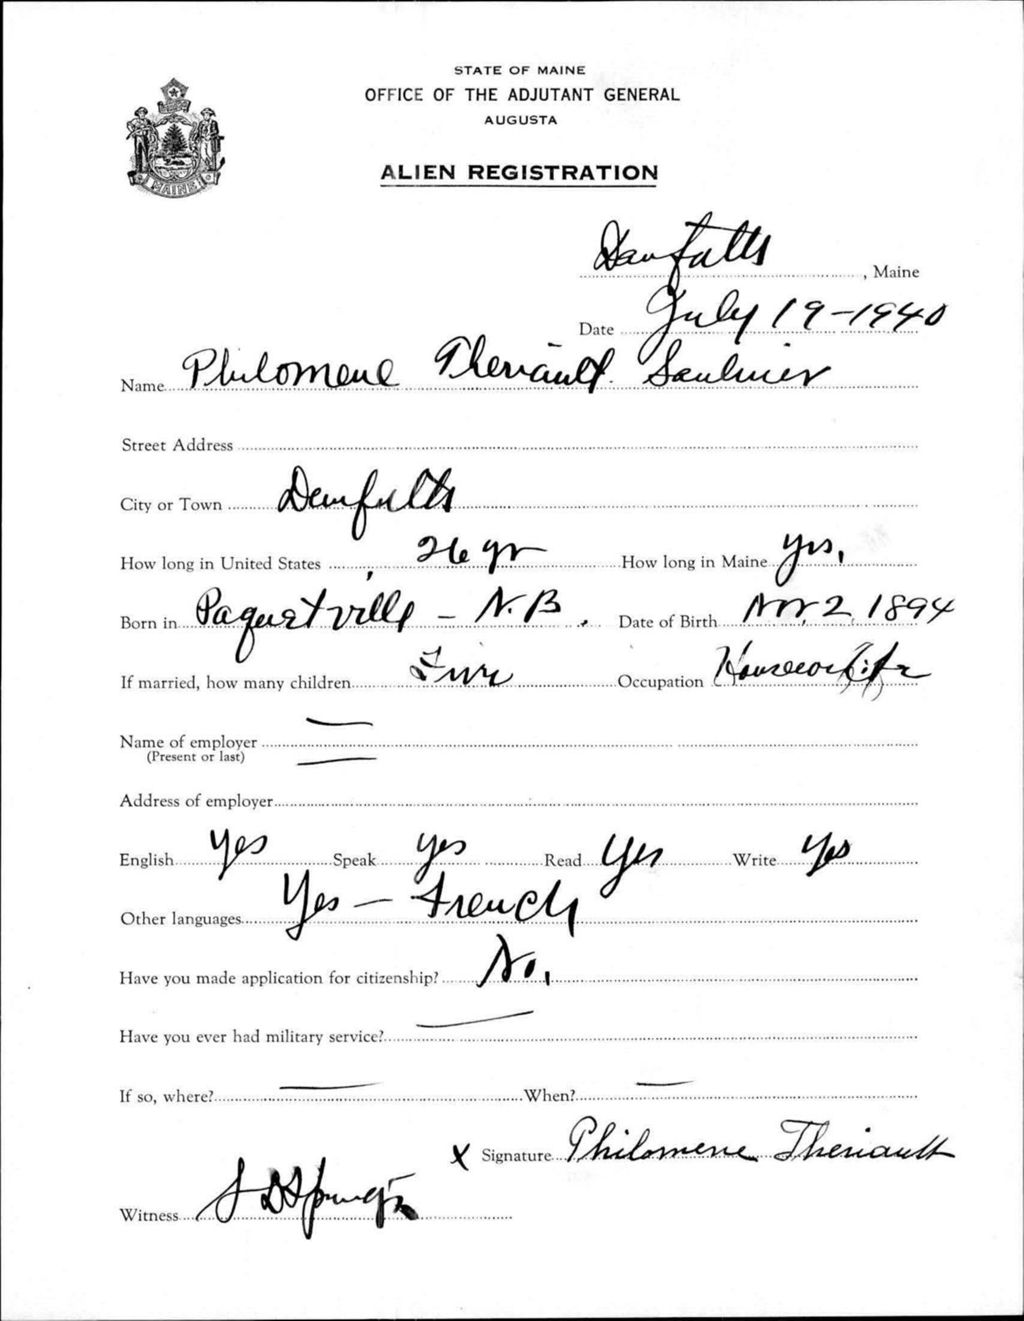 STATE OF MAINE
OFFICE OF THE ADJUTANT GENERAL
AUGUSTA
ALIEN REGISTRATION
MAINE
, Maine
Date July 19-1940
Name Philomene Theriault Saulnier
Street Address
City or Town
How long in United States 26 yr How long in Maine yrs.
Born in Paquetville - N.B. Date of Birth Nov, 2, 1894
If married, how many children Five Occupation
Name of employer
(Present or last)
Address of employer
English Yes Speak Yes Read Yes Write Yes
Other languages Yes - French
Have you made application for citizenship? No.
Have you ever had military service?
If so, where? When?
X Signature Philomene Theriault
Witness